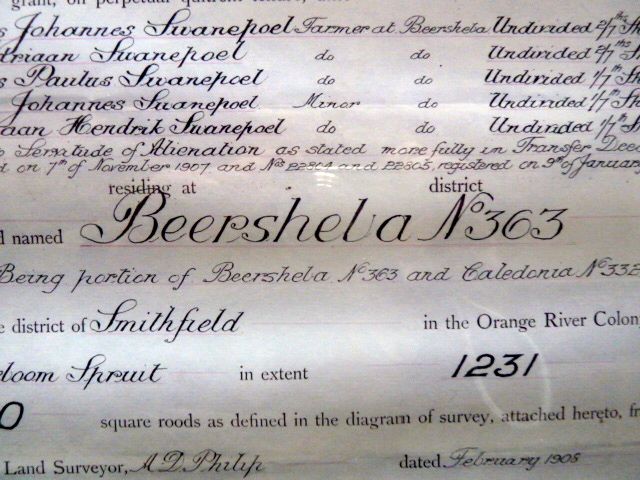 grant, on perpetual quitrent tenure,
s Johannes Swanepoel Farmer at Beersheba Undivided 2/7ths Sh
driaan Swanepoel do do Undivided 2/7ths Sh
s Paulus Swanepoel do do Undivided 1/7th Sh
Johannes Swanepoel Minor do Undivided 1/7th Sh
iaan Hendrik Swanepoel do do Undivided 1/7th Sh
o Servitude of Alienation as stated more fully in Transfer Deed
d on 7th of November 1907 and Nos 22804 and 22805, registered on 9th of January
residing at district
d named Beersheba No 363
Being portion of Beersheba No 363 and Caledonia No 338
e district of Smithfield in the Orange River Colon
loom Spruit in extent 1231
0 square roods as defined in the diagram of survey, attached hereto, fr
Land Surveyor, A D Philip dated February 1908